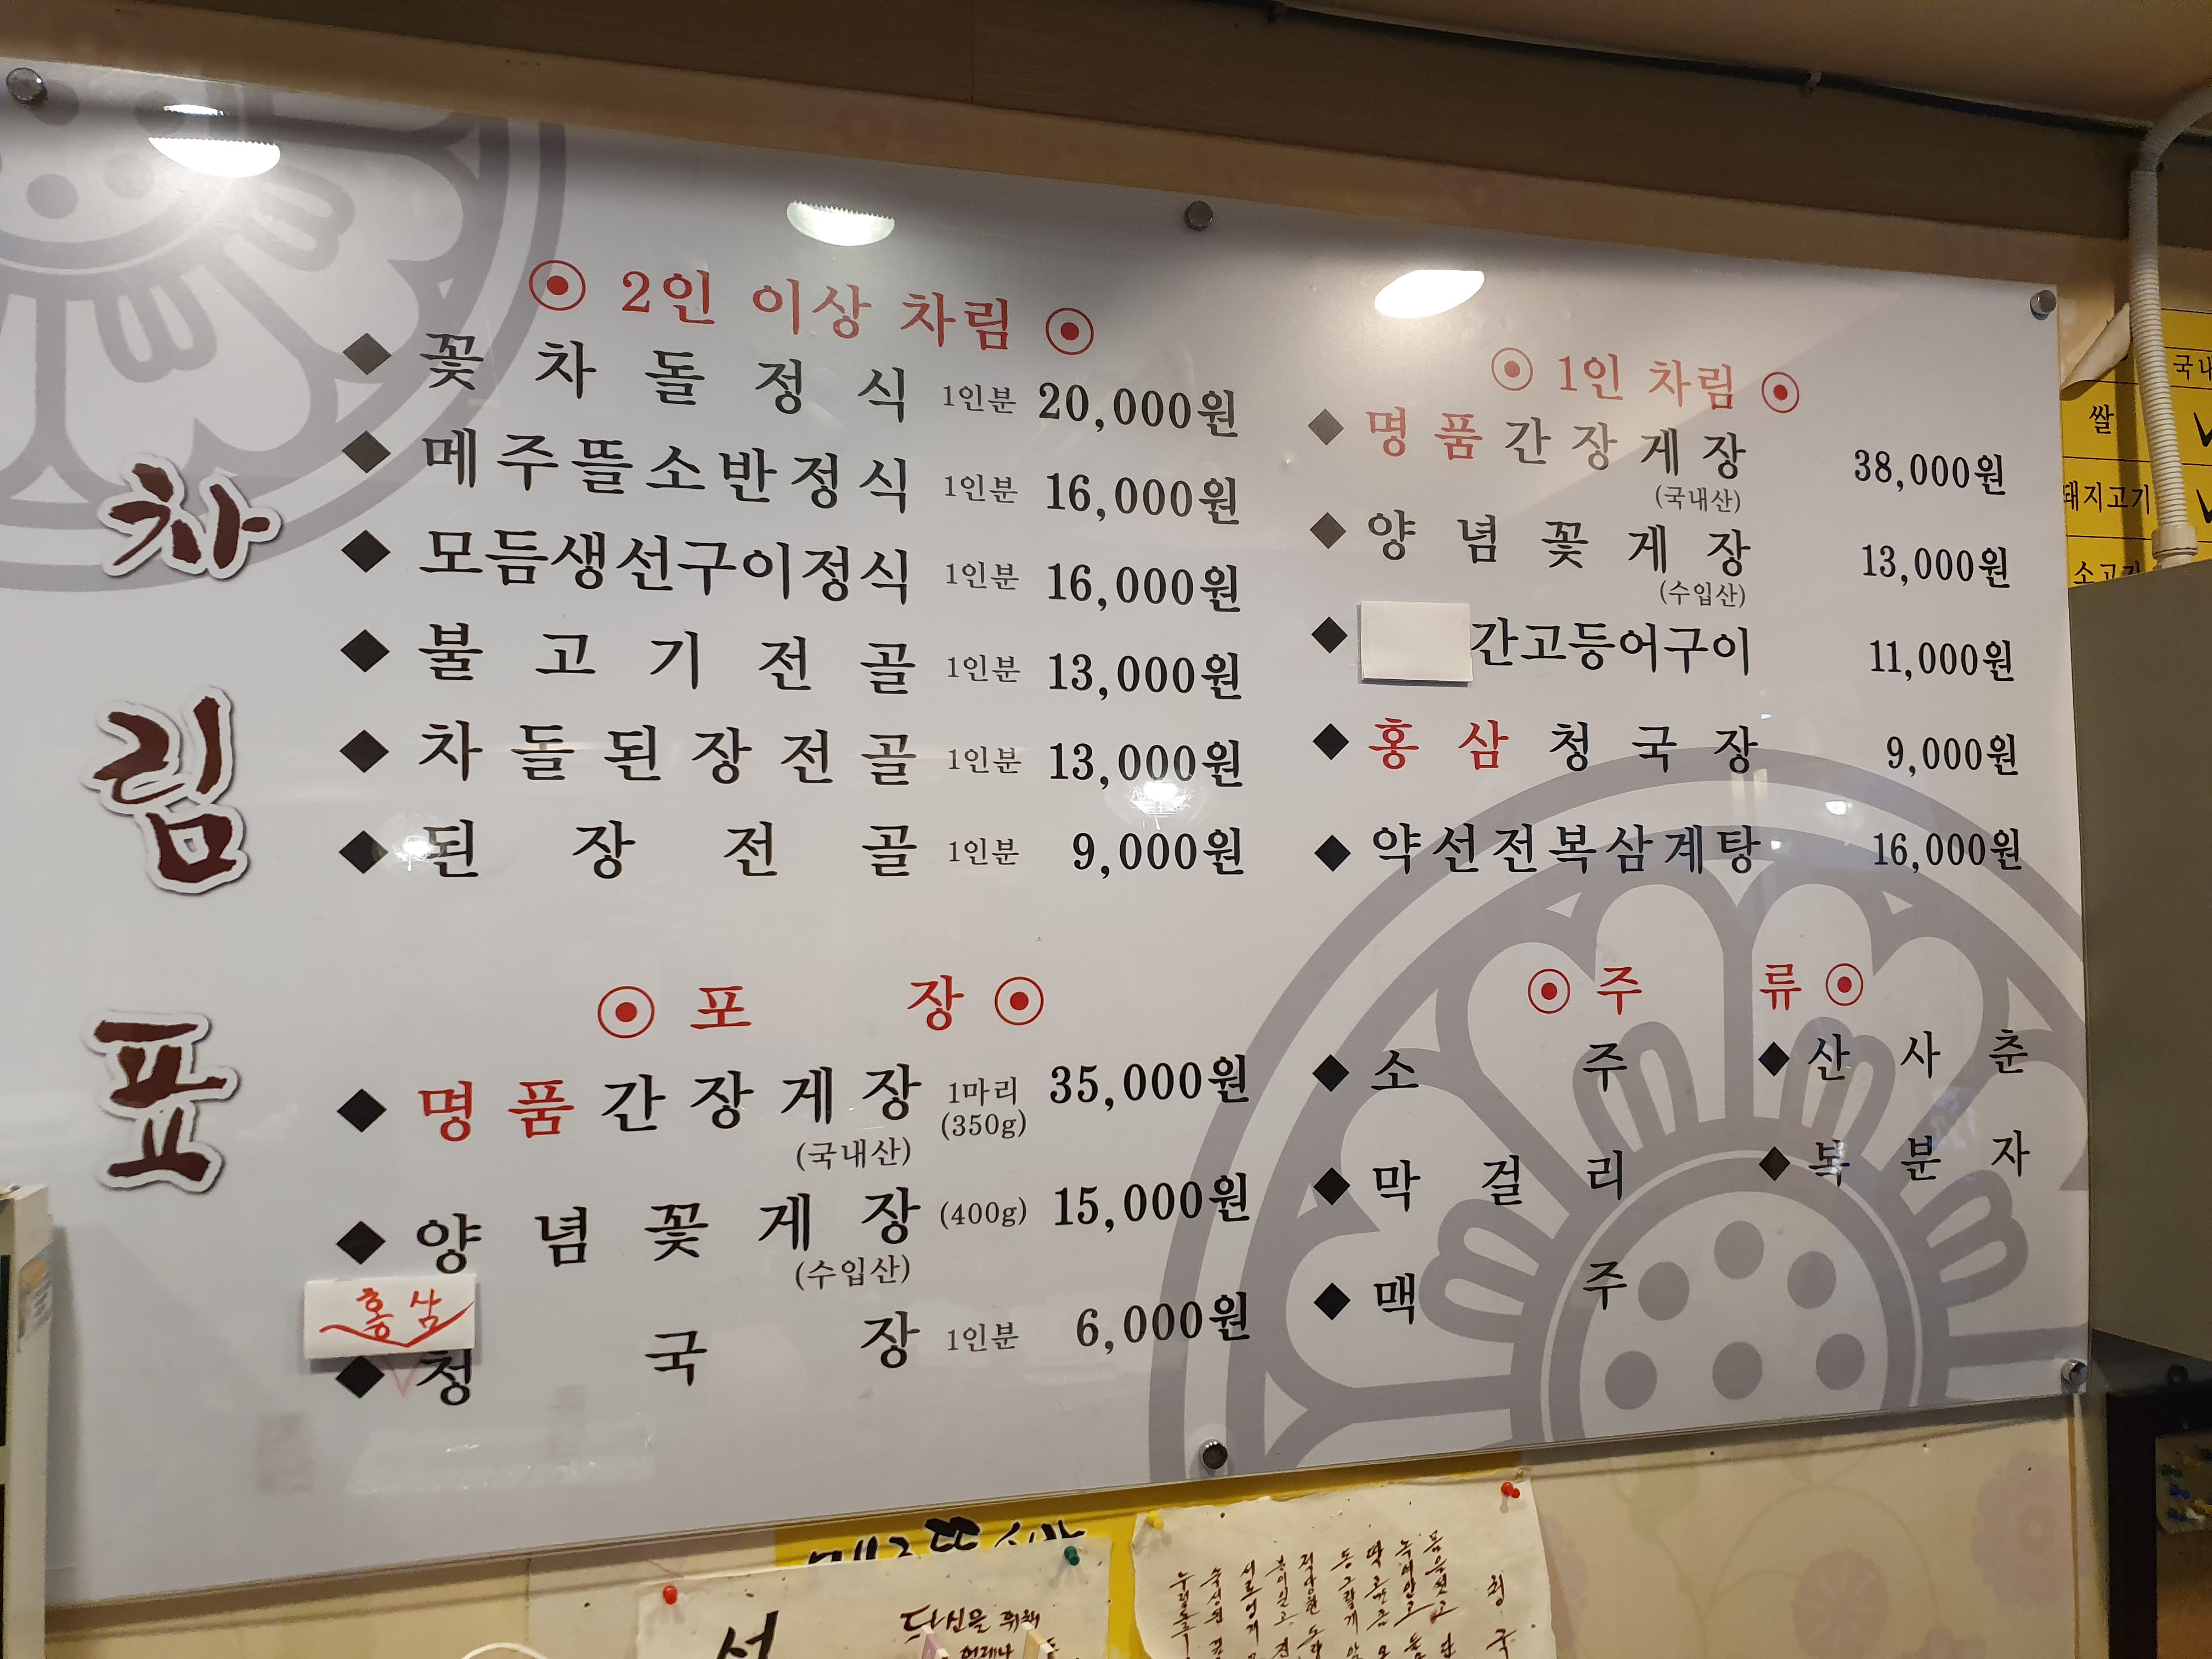 차림표
2인 이상 차림
꽃차돌정식 1인분 20,000원
메주뜰소반정식 1인분 16,000원
모듬생선구이정식 1인분 16,000원
불고기전골 1인분 13,000원
차돌된장전골 1인분 13,000원
된장전골 1인분 9,000원
포장
명품간장게장 1마리 35,000원
(국내산) (350g)
양념꽃게장 (400g) 15,000원
(수입산)
홍삼
청국장 1인분 6,000원
1인 차림
명품간장게장 38,000원
(국내산)
양념꽃게장 13,000원
(수입산)
간고등어구이 11,000원
홍삼청국장 9,000원
약선전복삼계탕 16,000원
주류
소주 산사춘
막걸리 복분자
맥주
국내
쌀
돼지고기
소고기
당신을 위해
언제나